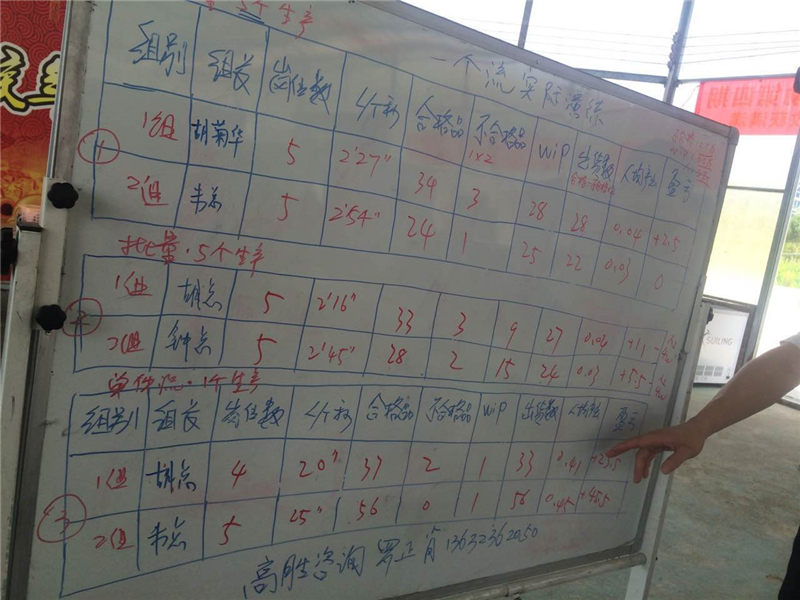 5个生产
一个流实际演练
组别 组长 岗位数 4个秒 合格品 不合格品 WiP 出货数 人均产出 盈亏
1×2
① 1组 胡菊华 5 2'27" 34 3 28 28 0.04 +2.5
2组 韦总 5 2'54" 24 1 25 22 0.03 0
批量·5个生产
② 1组 胡总 5 2'16" 33 3 9 27 0.04 +11
2组 钟总 5 2'45" 28 2 15 24 0.03 +5.5
单件流·1个生产
组别 组长 岗位数 4个秒 合格品 不合格品 WiP 出货数 人均产出 盈亏
③ 1组 胡总 4 20" 37 2 1 33 0.41 +23.5
2组 韦总 5 25" 56 0 1 56 0.45 +45.5
高胜咨询 罗正肖 13632362050
SUILING